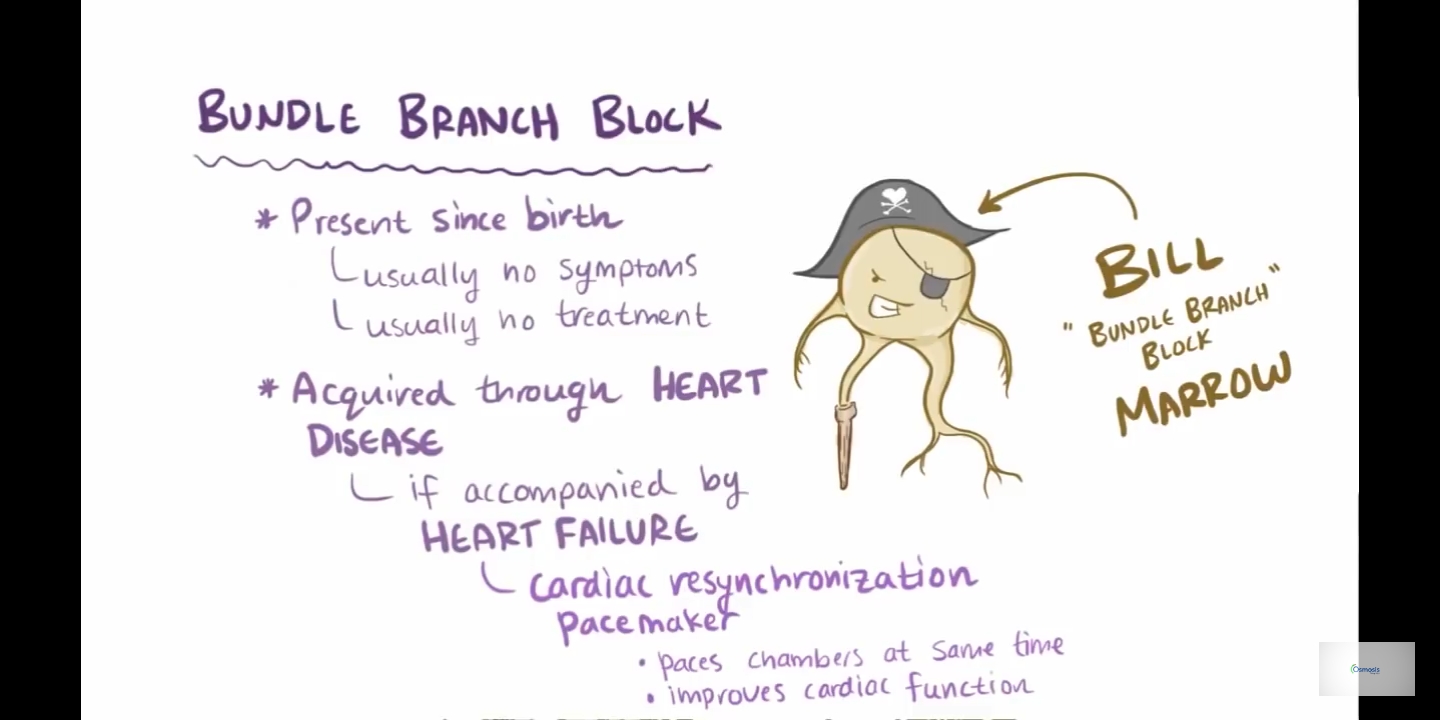 BUNDLE BRANCH BLOCK
* Present since birth
usually no symptoms
usually no treatment
* Acquired through HEART
DISEASE
if accompanied by
HEART FAILURE
cardiac resynchronization
pacemaker
• paces chambers at same time
• improves cardiac function
BILL
"BUNDLE BRANCH"
BLOCK
MARROW
Osmosis